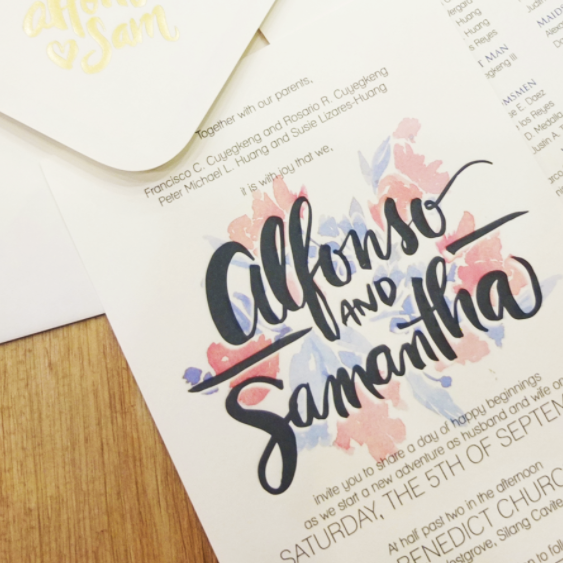 Sam
Together with our parents,
Francisco C. Cuyegkeng and Rosario R. Cuyegkeng
Peter Michael L. Huang and Susie Lizares-Huang
it is with joy that we,
Alfonso
AND
Samantha
invite you to share a day of happy beginnings
as we start a new adventure as husband and wife on
SATURDAY, THE 5TH OF
At half past two in the afternoon
BENEDICT
Silang Cavite
Reyes
T MAN
MAIDS
MSMEN
E. Daez
los Reyes
D Medalla
Justin A.